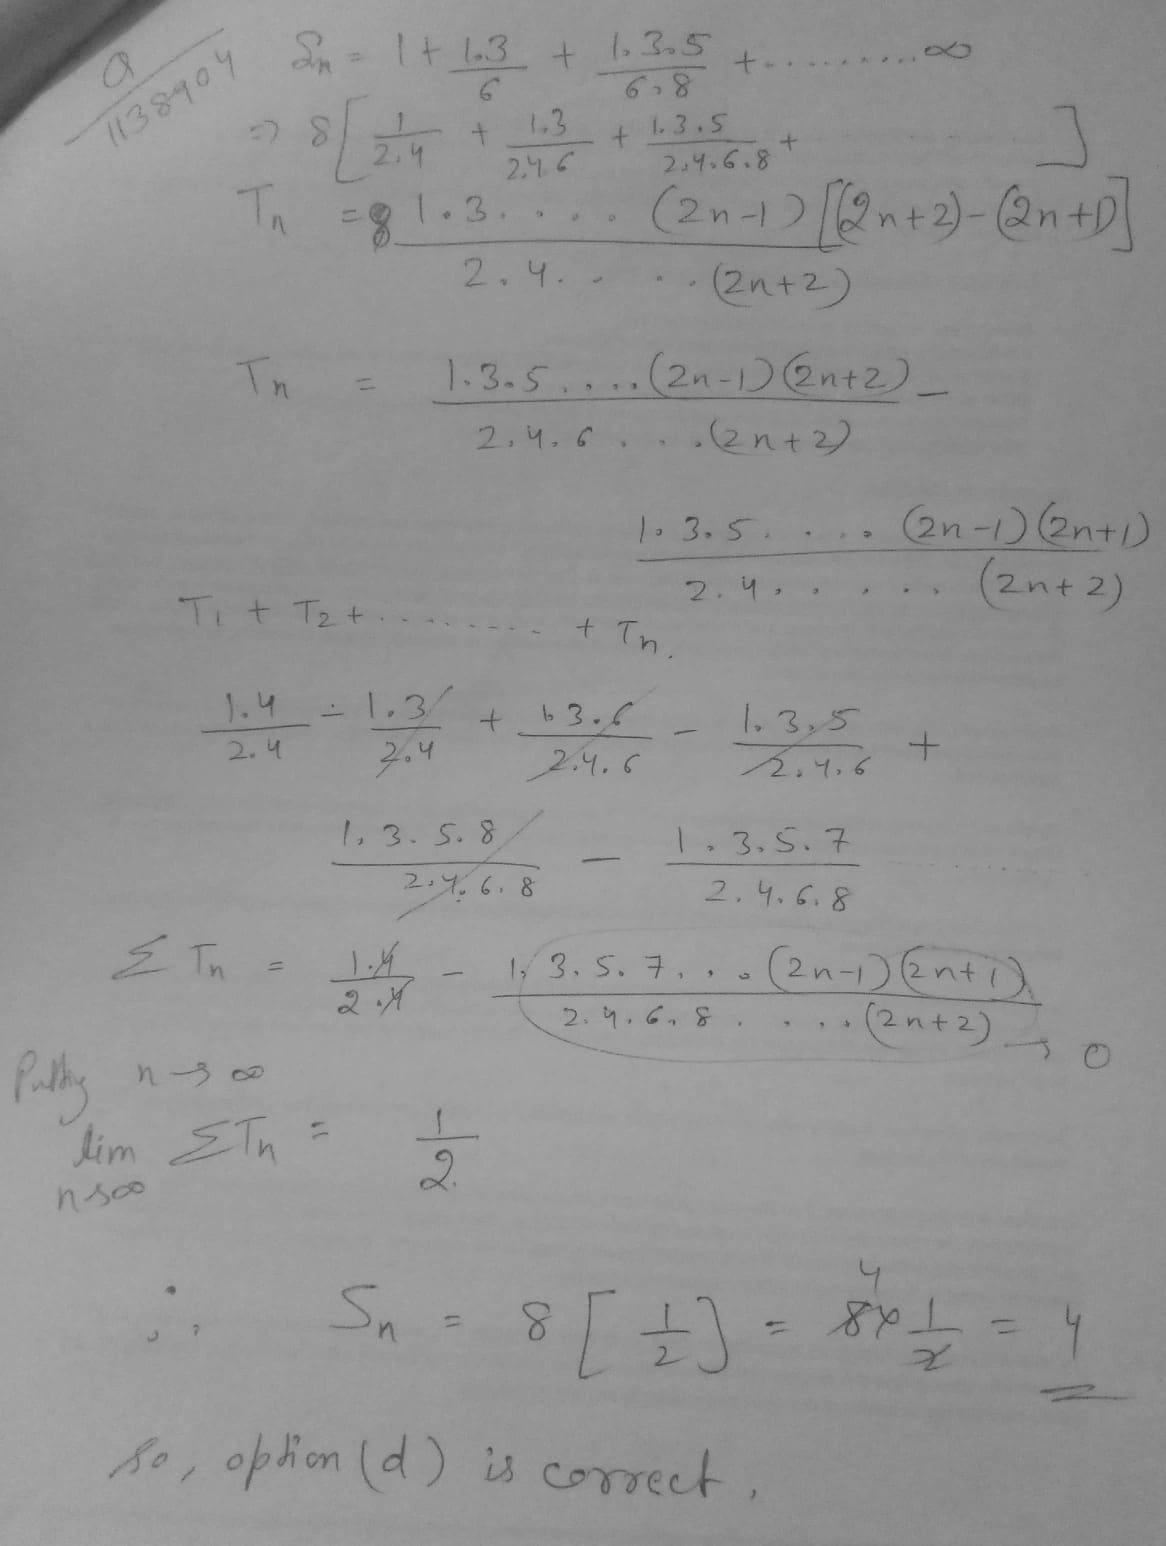 Q
1138904
Sn = 1 + 1.3/6 + 1.3.5/6.8 + .......... ∞
=> 8[ 1/2.4 + 1.3/2.4.6 + 1.3.5/2.4.6.8 + ]
Tn = 8 1.3. . . . (2n-1)[(2n+2)-(2n+1)] / 2.4. . . . (2n+2)
Tn = 1.3.5....(2n-1)(2n+2) / 2.4.6 . . .(2n+2) -
1.3.5. . . . (2n-1)(2n+1) / 2.4. . . . . . (2n+2)
T1 + T2 + ......... + Tn.
1.4/2.4 - 1.3/2.4 + 1.3.6/2.4.6 - 1.3.5/2.4.6 +
1.3.5.8/2.4.6.8 - 1.3.5.7/2.4.6.8 ........
Σ Tn = 1.4/2.4 - 1.3.5.7. . . (2n-1)(2n+1) / 2.4.6.8 . . . . (2n+2) → 0
Putting n→∞
lim n→∞ ΣTn = 1/2.
∴ Sn = 8[1/2] = 8 4 × 1/2 = 4
So, option (d) is correct.